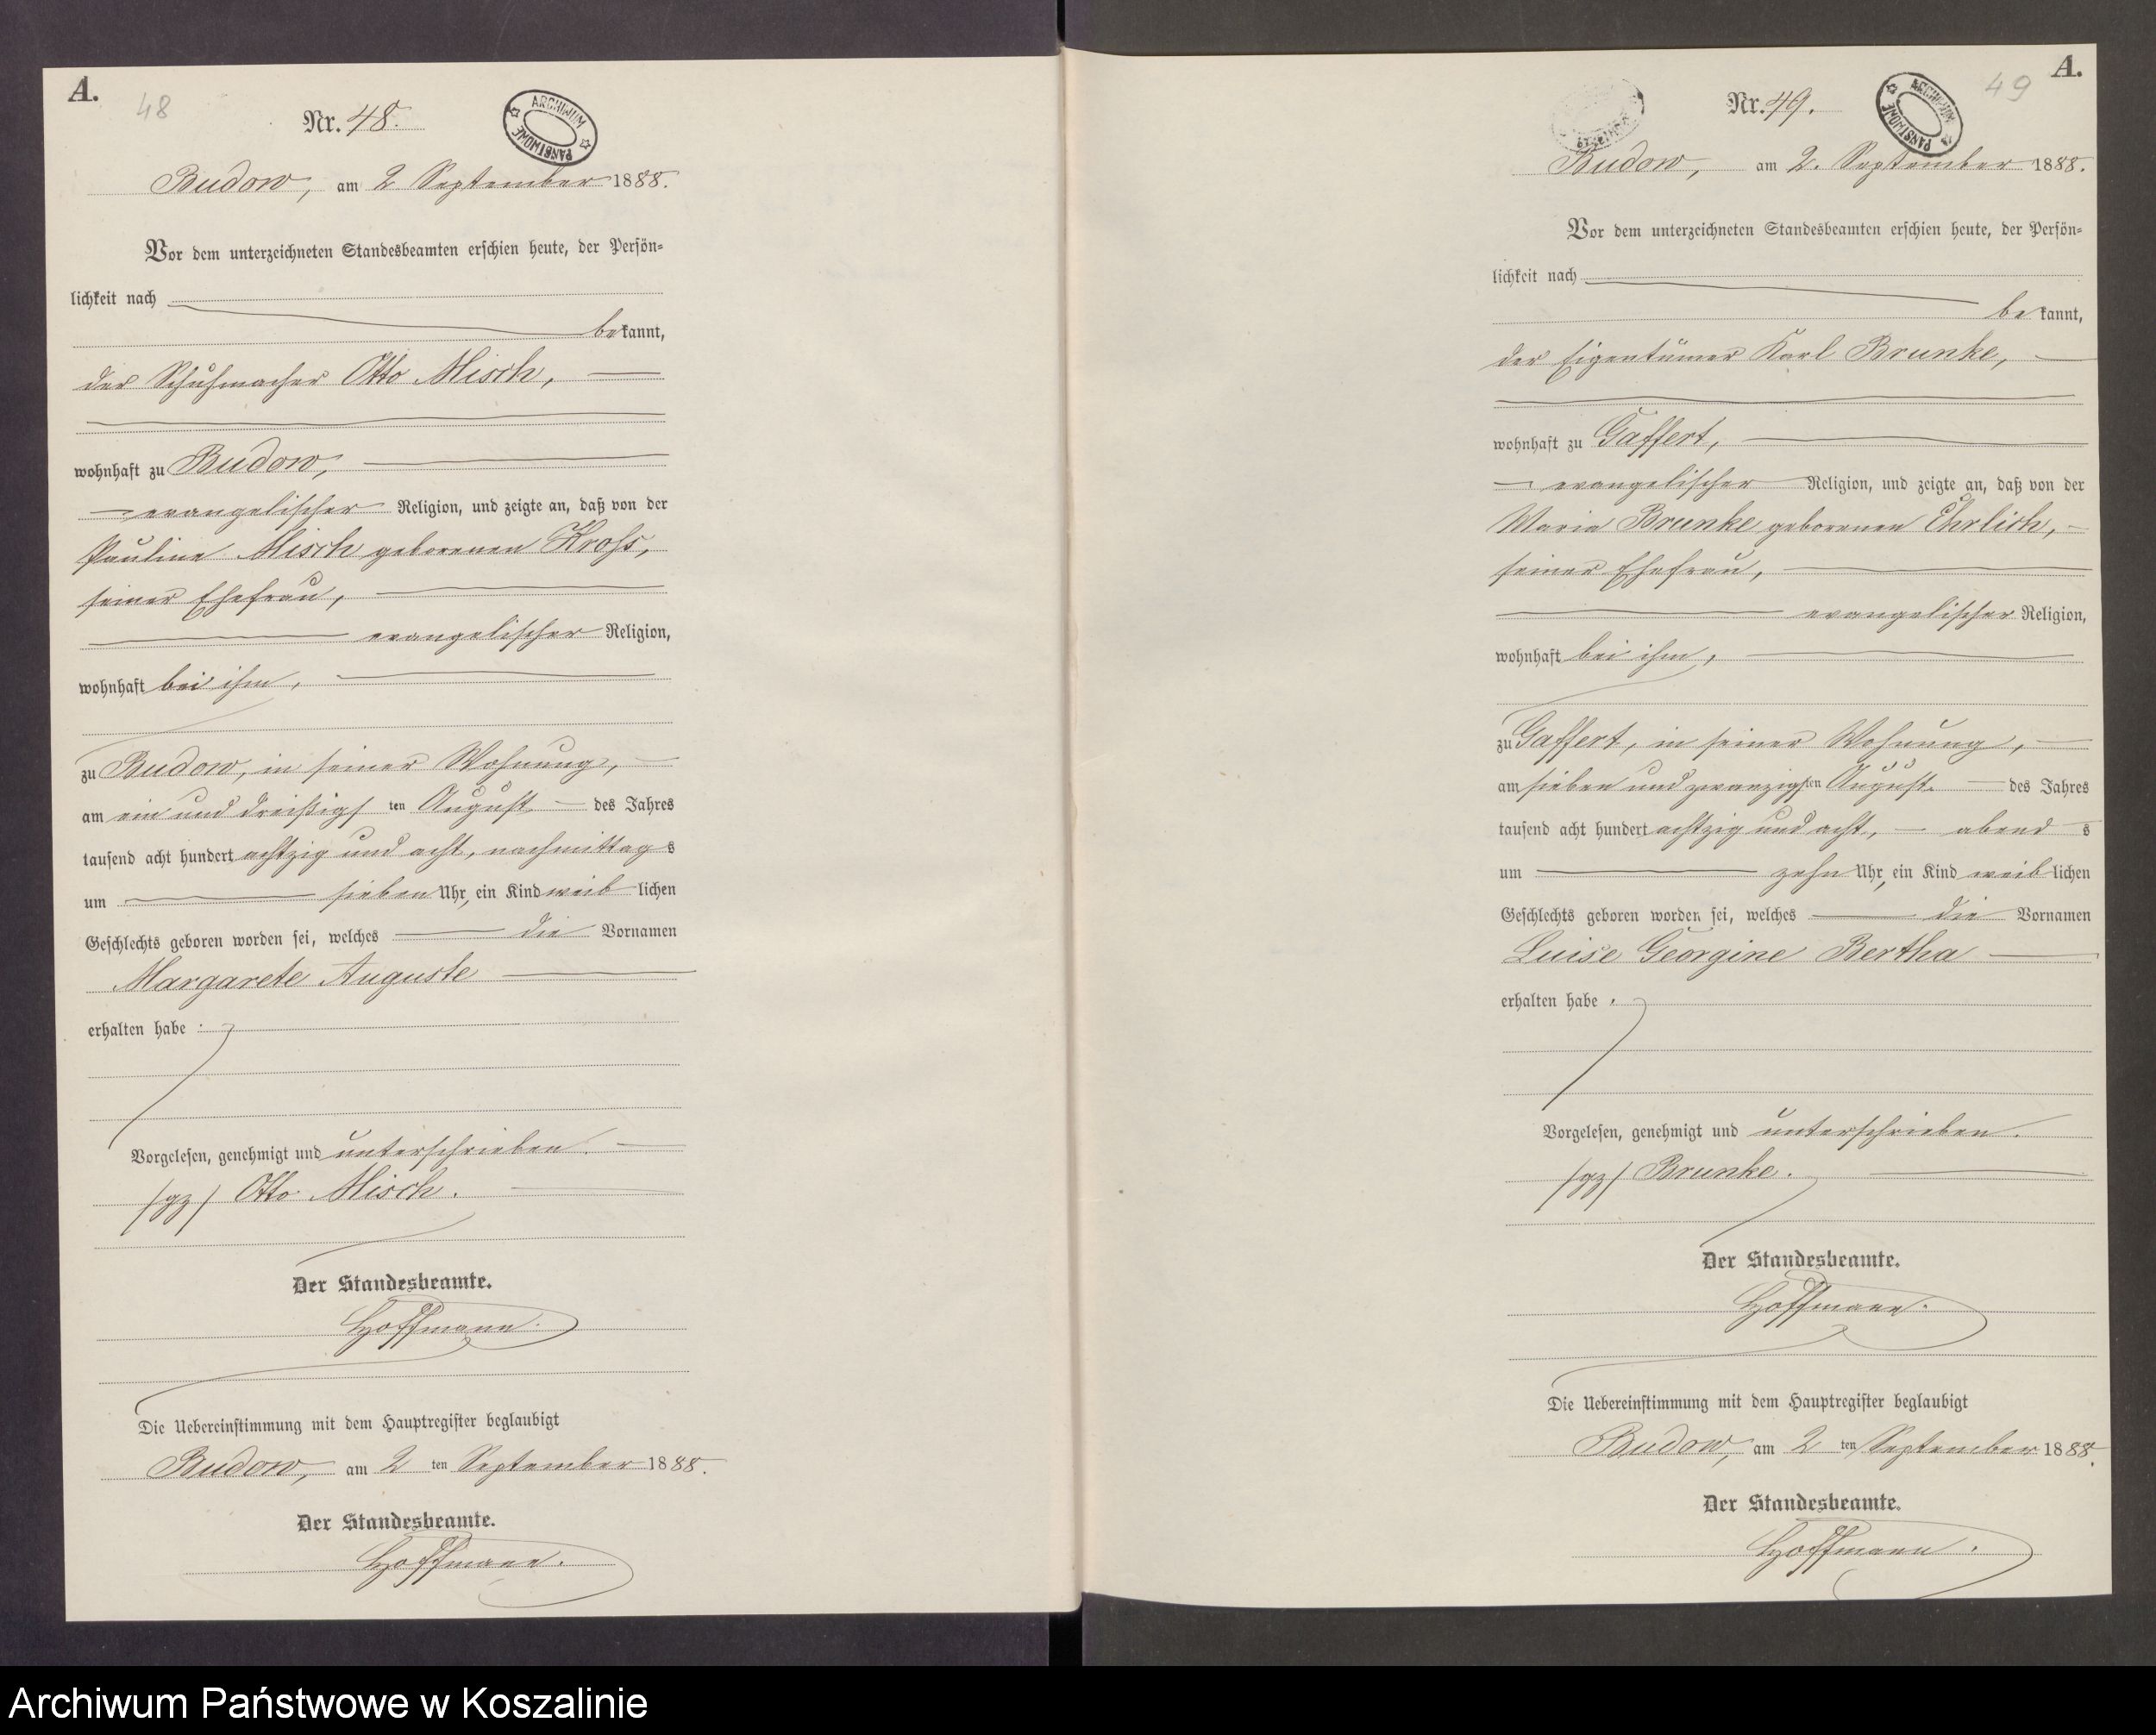 A.
48
Nr. 48.
ARCHIWUM PAŃSTWOWE
Budow, am 2 September 1888.
Vor dem unterzeichneten Standesbeamten erschien heute, der Persön=
lichkeit nach
bekannt,
der Schuhmacher Otto Misch,
wohnhaft zu Budow,
evangelischer Religion, und zeigte an, daß von der
Pauline Misch geborenen Kroß,
seiner Ehefrau,
evangelischer Religion,
wohnhaft bei ihm,
zu Budow, in seiner Wohnung,
am ein und dreißigsten August des Jahres
tausend acht hundert achtzig und acht, nachmittags
um sieben Uhr, ein Kind weiblichen
Geschlechts geboren worden sei, welches die Vornamen
Margarete Auguste
erhalten habe.
Vorgelesen, genehmigt und unterschrieben.
/gz/ Otto Misch.
Der Standesbeamte.
Hoffmann.
Die Uebereinstimmung mit dem Hauptregister beglaubigt
Budow, am 2 ten September 1888.
Der Standesbeamte.
Hoffmann.
A.
49
Nr. 49.
ARCHIWUM PAŃSTWOWE
Budow, am 2. September 1888.
Vor dem unterzeichneten Standesbeamten erschien heute, der Persön=
lichkeit nach
bekannt,
der Eigentümer Karl Brunke,
wohnhaft zu Gaffert,
evangelischer Religion, und zeigte an, daß von der
Maria Brunke geborenen Ehrlich,
seiner Ehefrau,
evangelischer Religion,
wohnhaft bei ihm,
zu Gaffert, in seiner Wohnung,
am sieben und zwanzigsten August des Jahres
tausend acht hundert achtzig und acht, abends
um zehn Uhr, ein Kind weiblichen
Geschlechts geboren worden sei, welches die Vornamen
Luise Georgine Bertha
erhalten habe.
Vorgelesen, genehmigt und unterschrieben.
/gz/ Brunke.
Der Standesbeamte.
Hoffmann.
Die Uebereinstimmung mit dem Hauptregister beglaubigt
Budow, am 2 ten September 1888.
Der Standesbeamte.
Hoffmann.
Archiwum Państwowe w Koszalinie